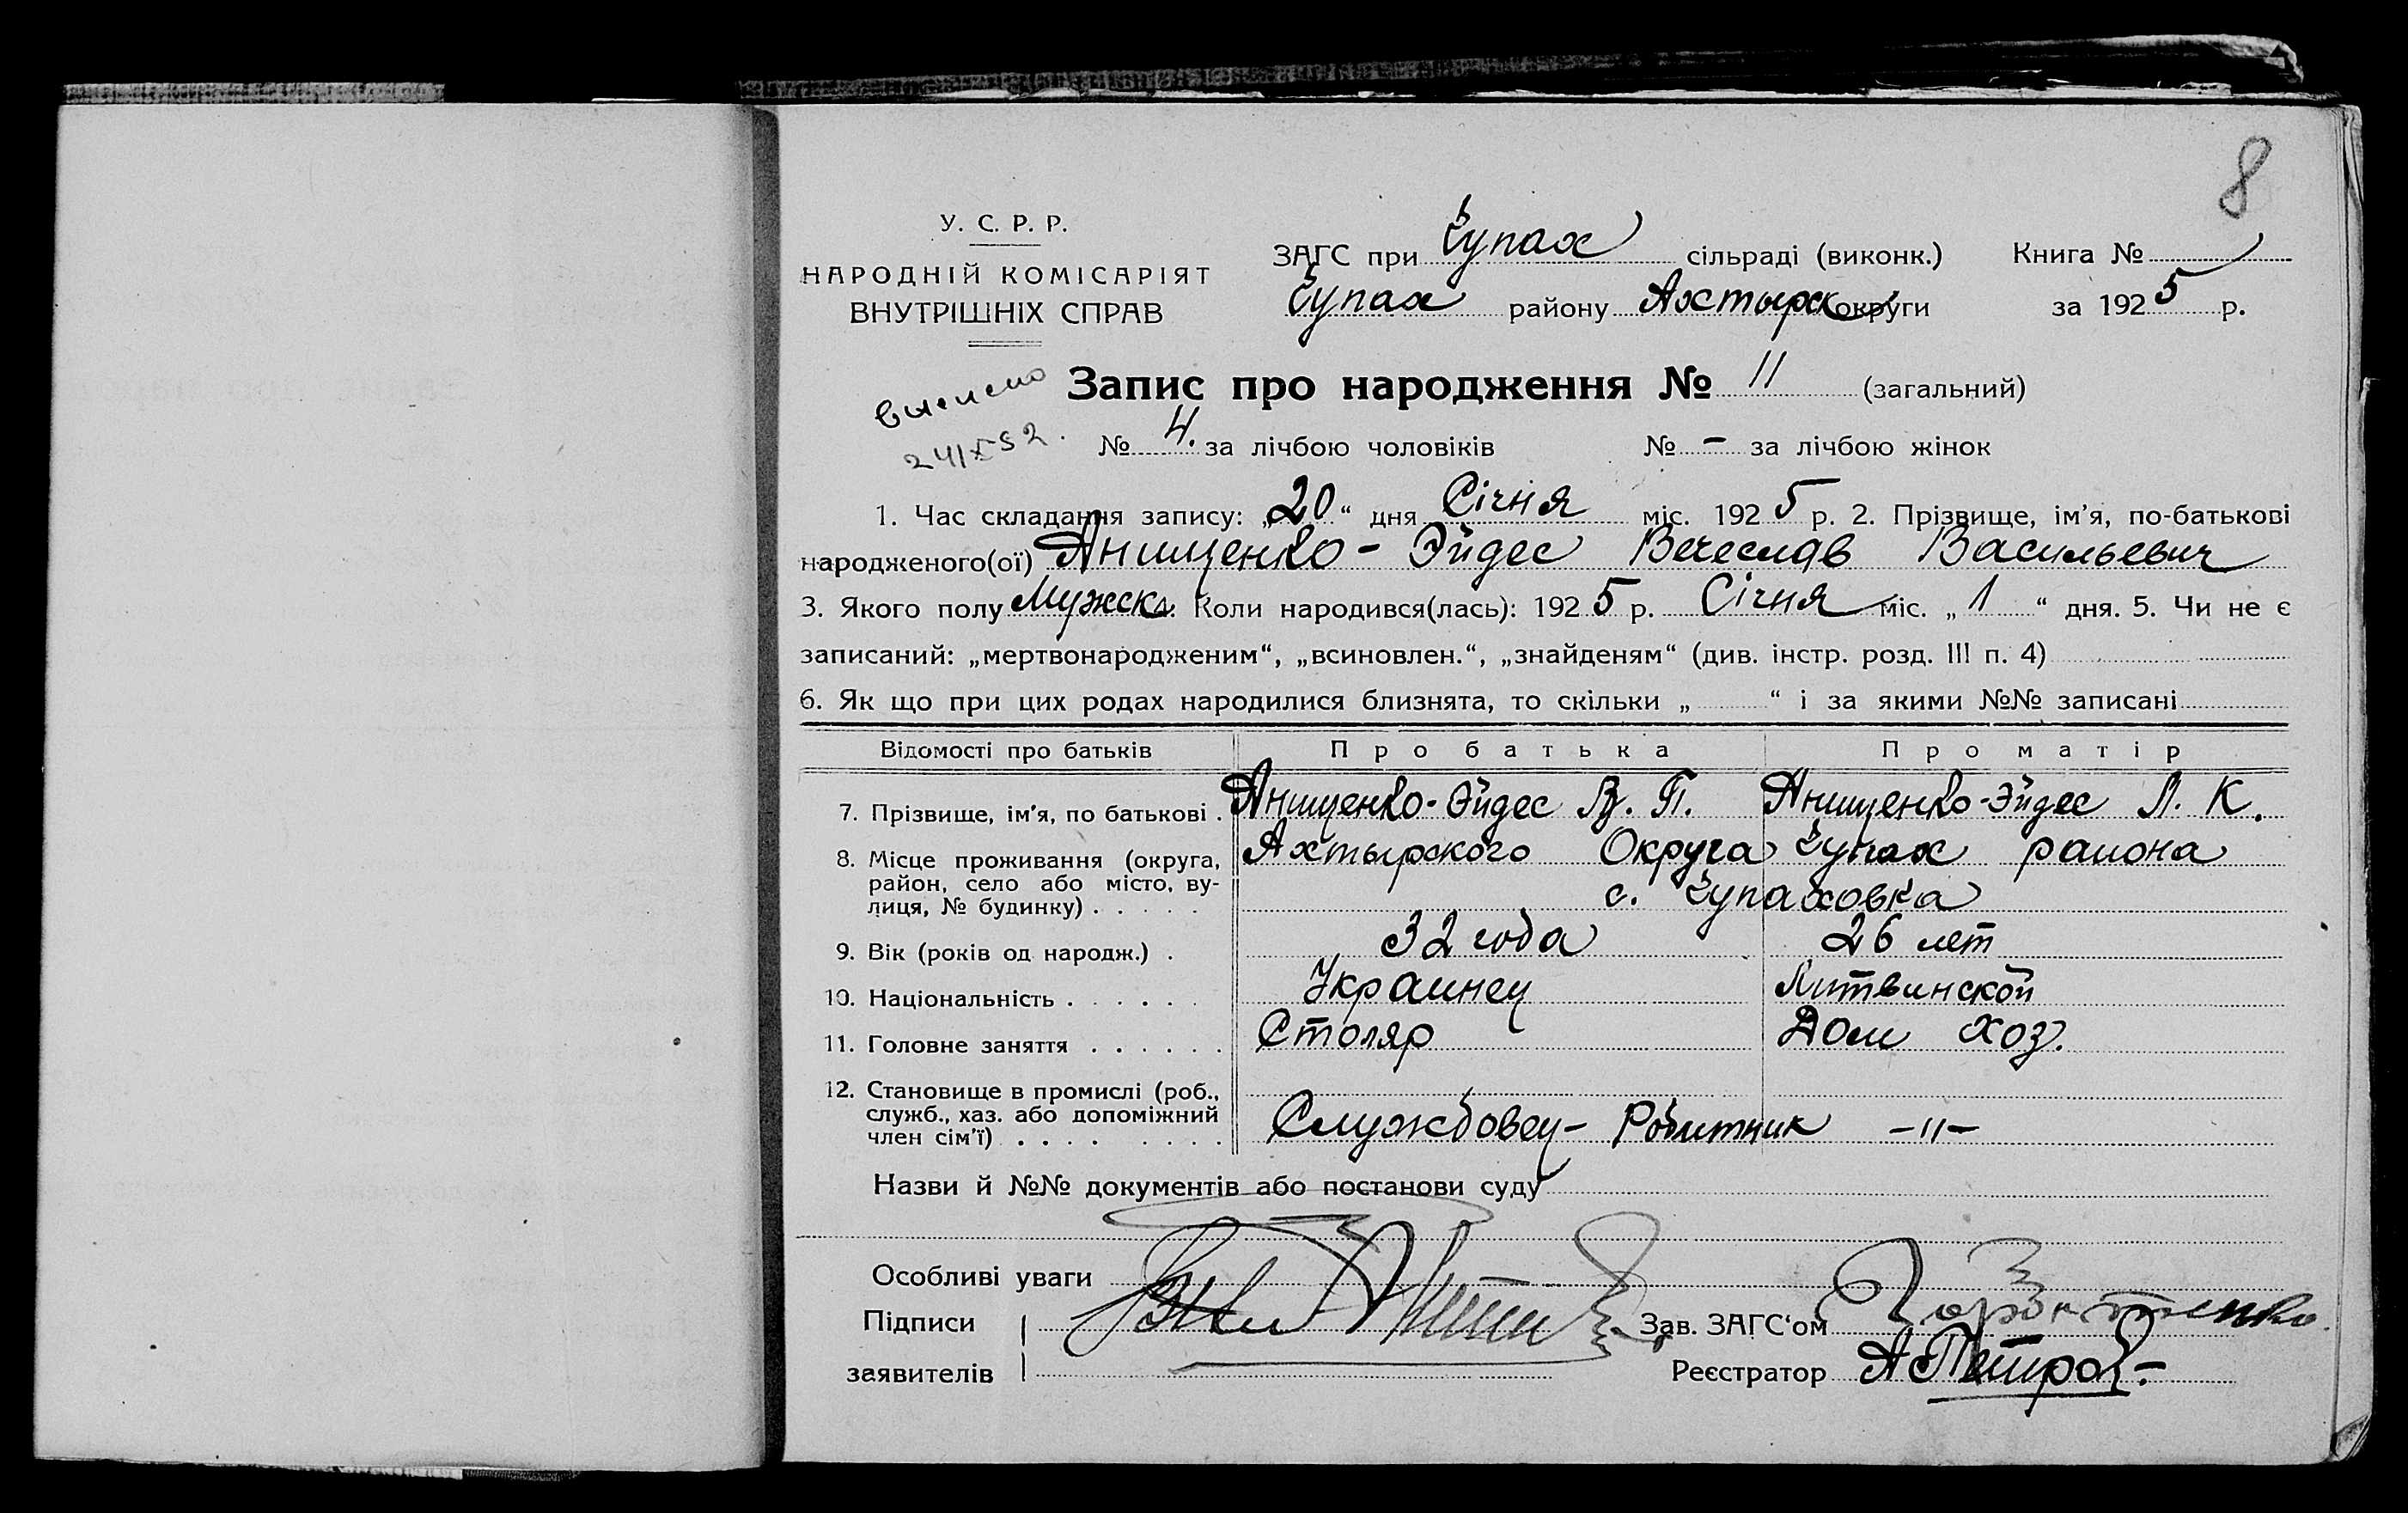 8
У. С. Р. Р.
НАРОДНІЙ КОМІСАРІЯТ
ВНУТРІШНІХ СПРАВ
ЗАГС при Чупах сільраді (виконк.) Книга №
Чупах району Ахтырск округи за 1925 р.
Запис про народження № 11 (загальний)
выписано
24/X 52.
№ 4. за лічбою чоловіків № – за лічбою жінок
1. Час складання запису: „20“ дня Січня міс. 1925 р. 2. Прізвище, ім’я, по-батькові
народженого(ої) Анищенко - Эйдес Вечеслав Васильевич
3. Якого полу Мужск. 4. Коли народився(лась): 1925 р. Січня міс. „1“ дня. 5. Чи не є
записаний: „мертвонародженим“, „всиновлен.“, „знайденям“ (див. інстр. розд. III п. 4)
6. Як що при цих родах народилися близнята, то скільки „ “ і за якими №№ записані
Відомості про батьків Про батька Про матір
7. Прізвище, ім’я, по батькові . Анищенко-Эйдес В. П. Анищенко-Эйдес Л. К.
8. Місце проживання (округа, Ахтырского Округа Чупах раиона
район, село або місто, ву- с. Чупаховка
лиця, № будинку) . . . . .
9. Вік (років од народж.) . 32 года 26 лет
10. Національність . . . . . . Украинец Литвинской
11. Головне заняття . . . . . . Столяр Дом хоз.
12. Становище в промислі (роб.,
служб., хаз. або допоміжний Службовец- Робитник -"-
член сім’ї) . . . . . . . .
Назви й №№ документів або постанови суду
Особливі уваги
Підписи
Зав. ЗАГС‘ом
заявителів
Реєстратор АПетров